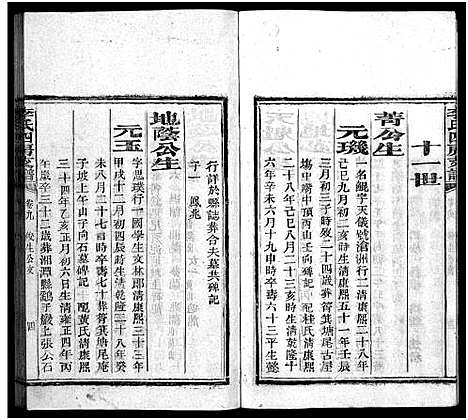 李氏四房支譜
十一世
菁公生
元璣
一名鯤字天儀號滄洲行二清康熙二十八年
己巳九月初二亥時生清康熙五十一年壬辰
三月初三子時歿二十四歲葬箬箕塘尾古屋
塲中嘴中頂丙山壬向碑記 配桂氏清康熙
二十八年己巳九月二十二亥時生清乾隆十
六年辛未六月十九申時卒壽六十三平生懿
行詳於縣誌葬合夫墓共碑記
子一 鳳兆
地蔭公生
元玉
字思璞行一國學生文林郎清康熙三十三年
甲戌十二月初四辰時生清乾隆二十八年癸
未八月二十七時卒壽七十葬箬箕塘尾庵
子坡上午山子向石墓碑記 配黃氏清康熙
三十四年乙亥正月初六日生清雍正四年丙
午歲卒三十二歲葬湘潭縣鷄子嚴上張公石
李氏四房支譜 卷九 俊生公支 四